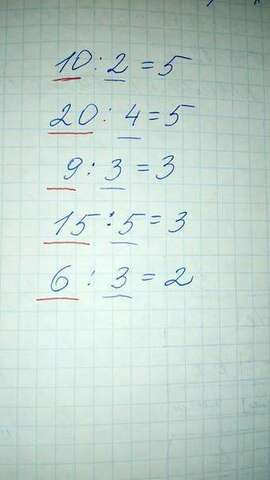 10 : 2 = 5
20 : 4 = 5
9 : 3 = 3
15 : 5 = 3
6 : 3 = 2